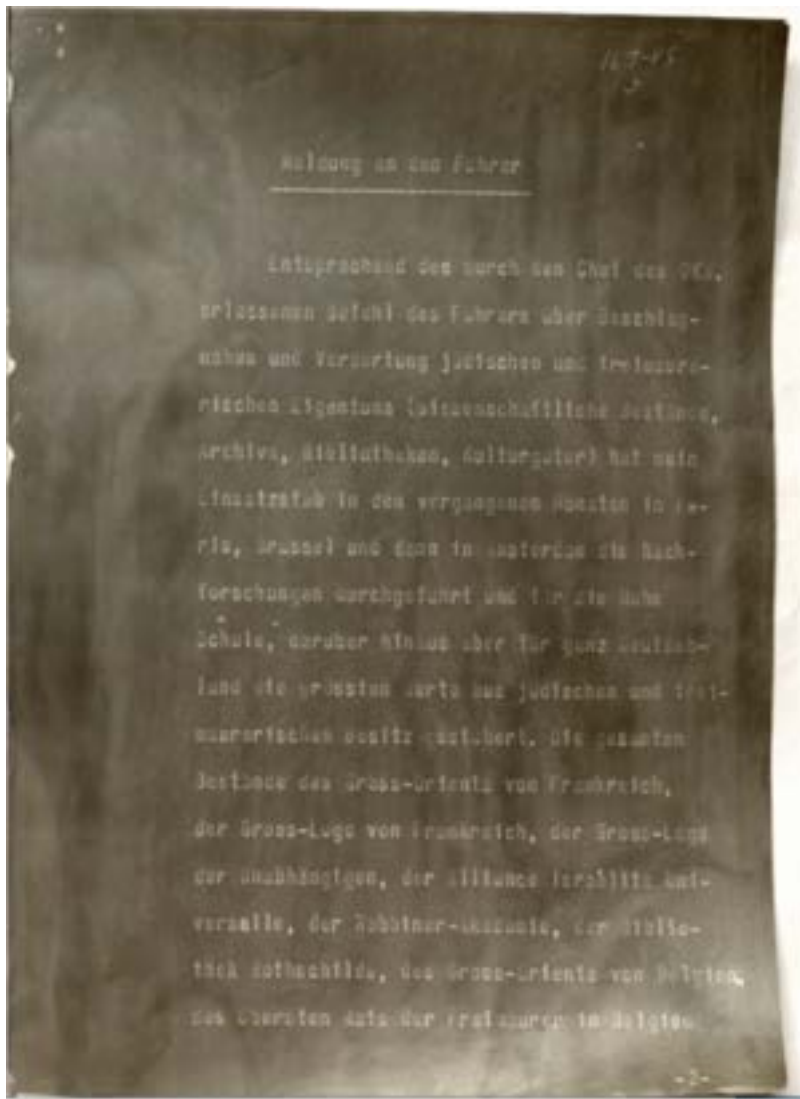 Meldung an den Führer
Entsprechend dem durch den Chef des OKW.
erlassenen Befehl des Führers über Beschlag-
nahme und Verwertung jüdischen und freimaure-
rischen Eigentums (wissenschaftliche Bestände,
Archive, Bibliotheken, Kulturgüter) hat mein
Einsatzstab in den vergangenen Monaten in Pa-
ris, Brüssel und dann in Amsterdam die Nach-
forschungen durchgeführt und für die Hohe
Schule, darüber hinaus aber für ganz Deutsch-
land die grössten Werte aus jüdischen und frei-
maurerischen Besitz gesichert. Die gesamten
Bestände des Gross-Orients von Frankreich,
der Gross-Loge von Frankreich, der Gross-Loge
der Unabhängigen, der Alliance Israélite Uni-
verselle, der Rabbiner-Akademie, der Biblio-
thek Rothschilds, des Gross-Orients von Belgien,
des Obersten Rats der Freimaurer in Belgien
-2-